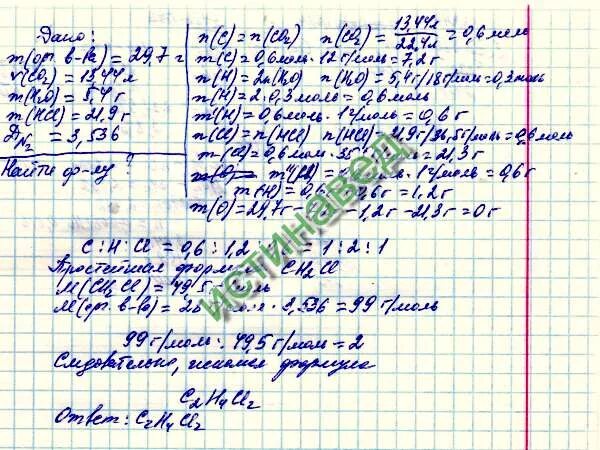 Дано:
m(орг. в-ва) = 29,7 г
V(CO₂) = 13,44 л
m(H₂O) = 5,4 г
m(HCl) = 21,9 г
D N₂ = 3,536
Найти ф-лу?
n(C) = n(CO₂) n(CO₂) = 13,44л/22,4л = 0,6 моль
m(C) = 0,6 моль · 12 г/моль = 7,2 г
n(H) = 2n(H₂O) n(H₂O) = 5,4 г/18 г/моль = 0,3 моль
n(H) = 2 · 0,3 моль = 0,6 моль
m'(H) = 0,6 моль · 1 г/моль = 0,6 г
n(Cl) = n(HCl) n(HCl) = 21,9 г/36,5 г/моль = 0,6 моль
m(Cl) = 0,6 моль · 35 = 21,3 г
m''(H) = моль · 1 г/моль = 0,6 г
m(H) = 0,6 0,6 г = 1,2 г
m(O) = 29,7 г - - 1,2 г - 21,3 г = 0 г
C : H : Cl = 0,6 : 1,2 : = 1 : 2 : 1
Простейшая формула CH₂Cl
M(CH₂Cl) = 49,5 моль
M(орг. в-ва) = 28 · 3,536 = 99 г/моль
99 г/моль : 49,5 г/моль = 2
Следовательно, искомая формула
C₂H₄Cl₂
Ответ: C₂H₄Cl₂
истинавед